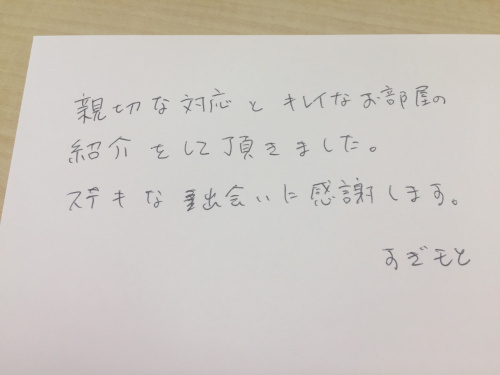 親切な対応とキレイなお部屋の
紹介をして頂きました。
ステキな出会いに感謝します。
すぎモと